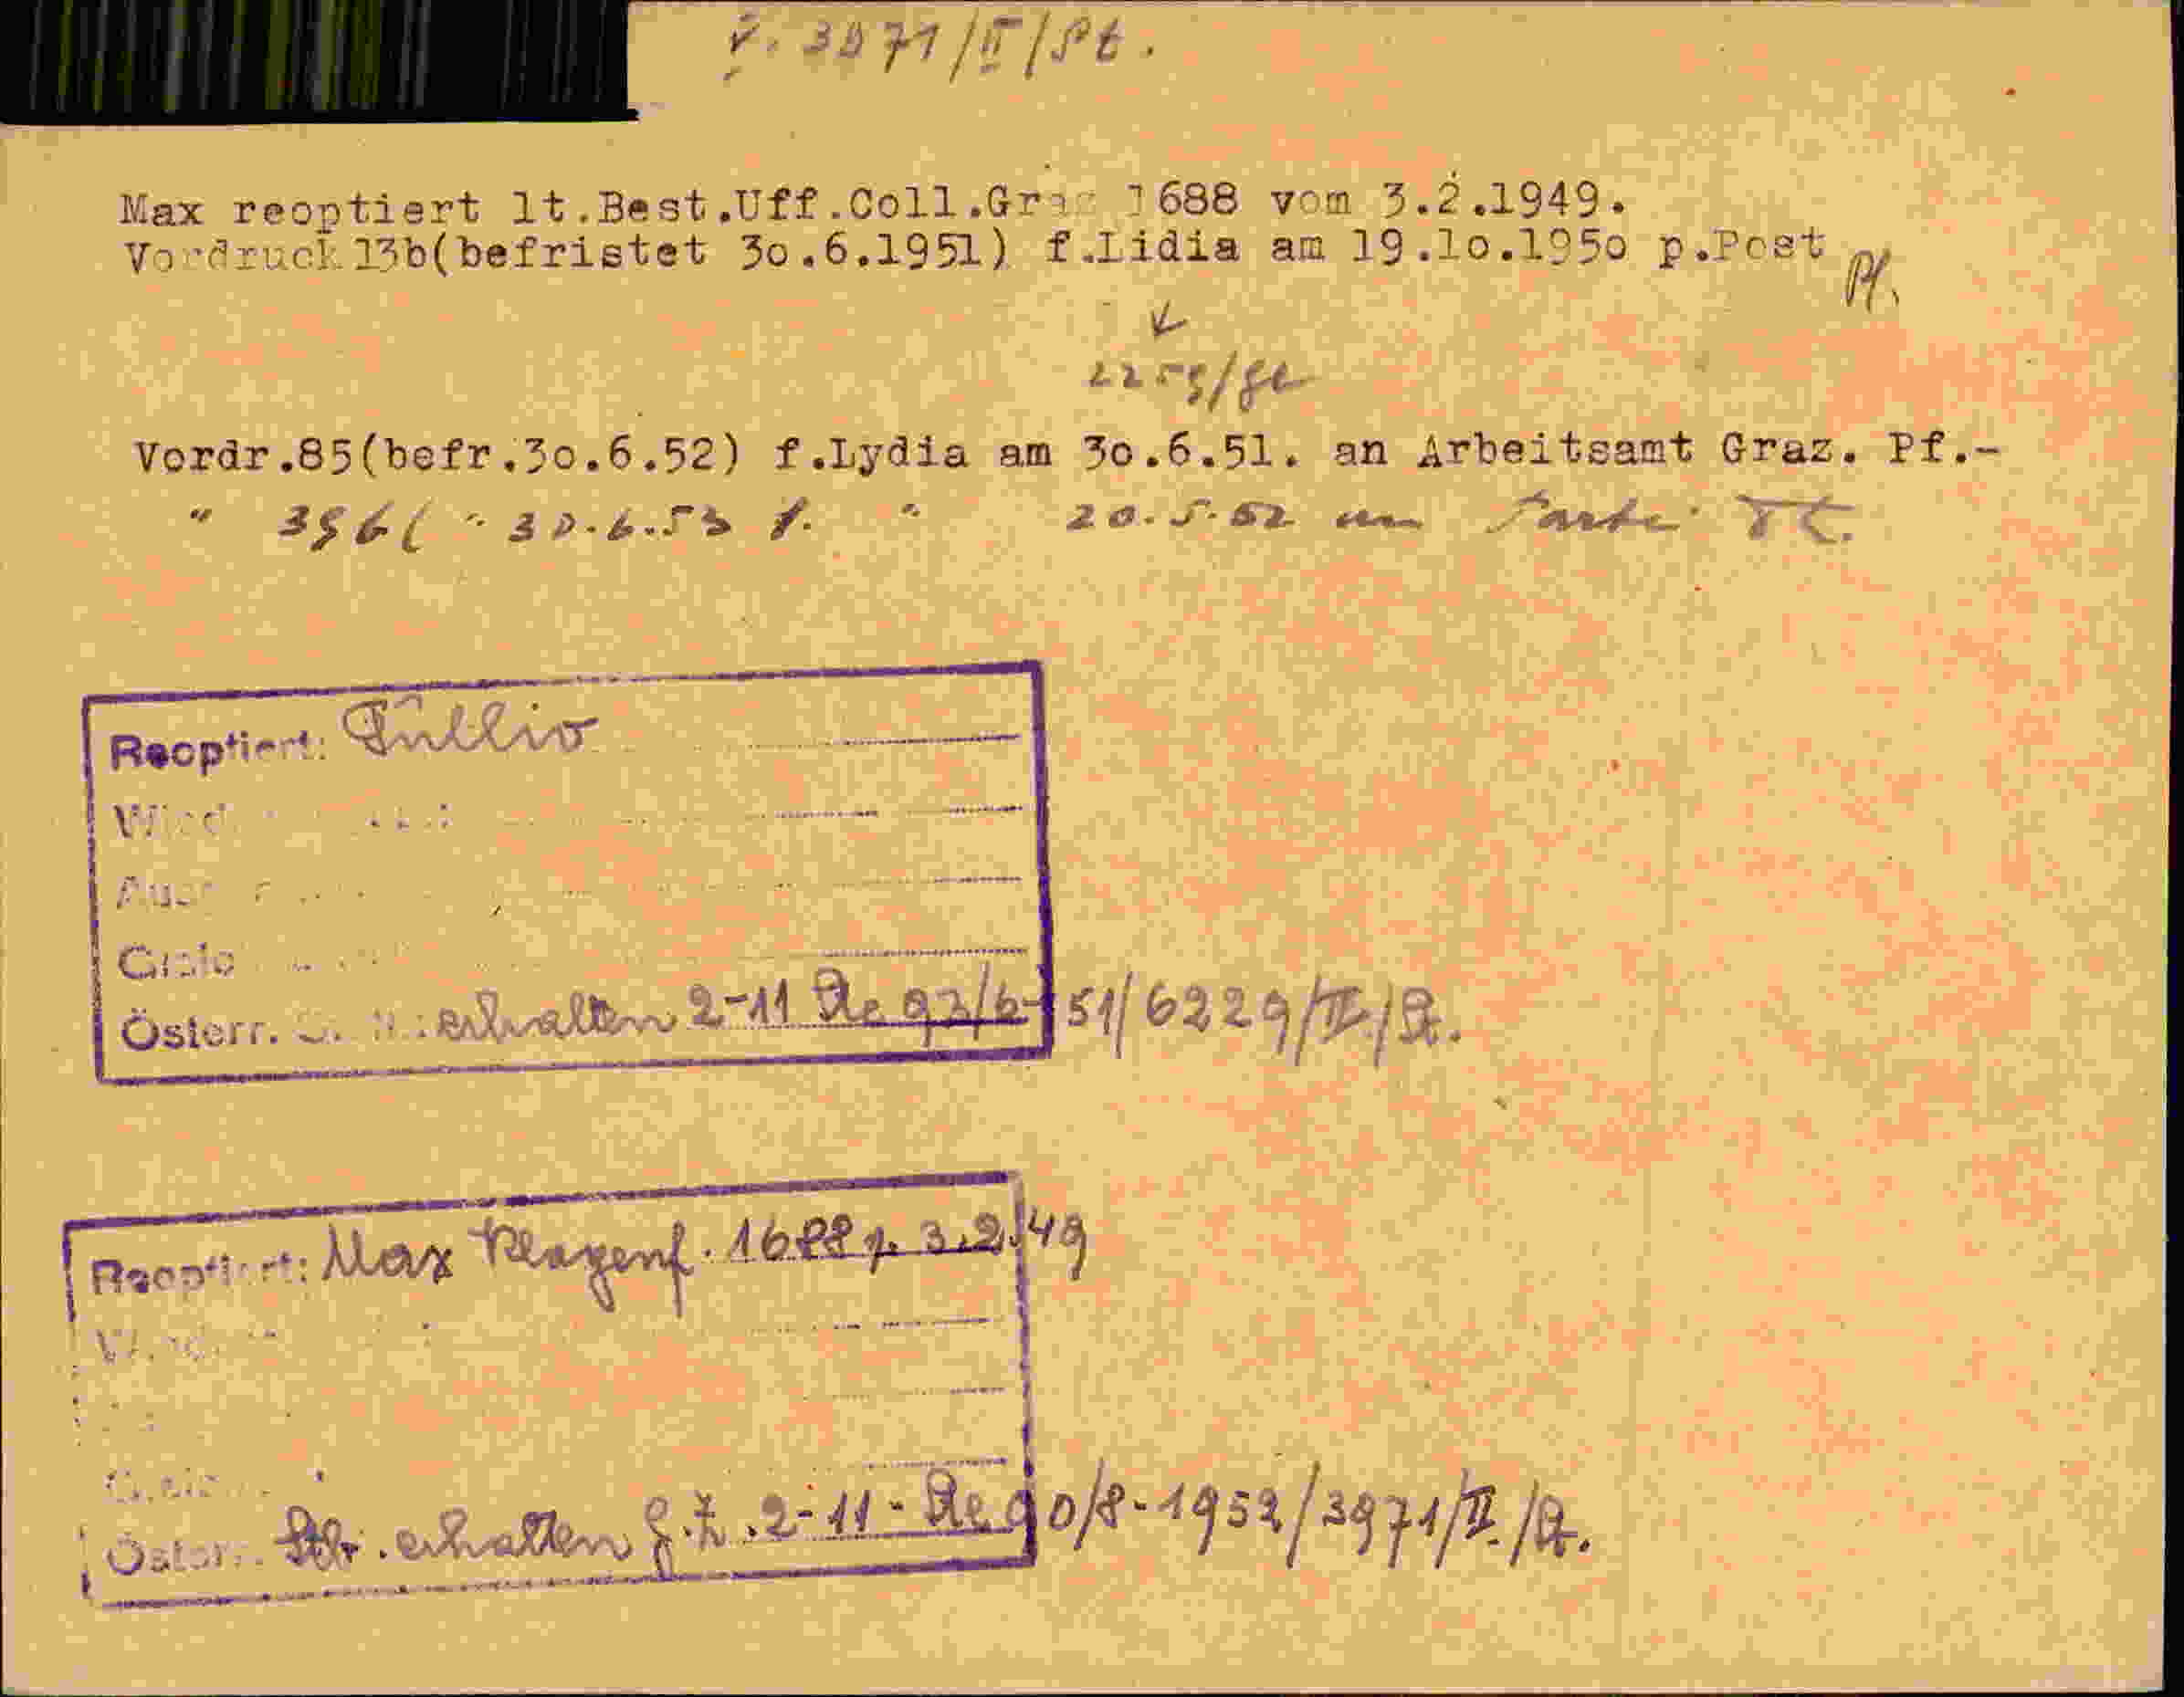 3971/II/St.
Max reoptiert lt.Best.Uff.Coll.Graz 1688 vom 3.2.1949.
Vordruck 13b(befristet 30.6.1951) f.Lidia am 19.10.1950 p.Post Pf.
Vordr.85(befr.30.6.52) f.Lydia am 30.6.51. an Arbeitsamt Graz. Pf.-
" 396( " 30.6.53 f. " 20.5.52 an Partei
Reoptiert: Tullio
Österr. erhalten 2-11 Re 93/6-51/6229/II./St.
Reoptiert: Max Klagenf. 1688 v. 3.2.49
Österr. Stb. erhalten g.Z. 2-11-Re 90/8-1952/3971/II./St.